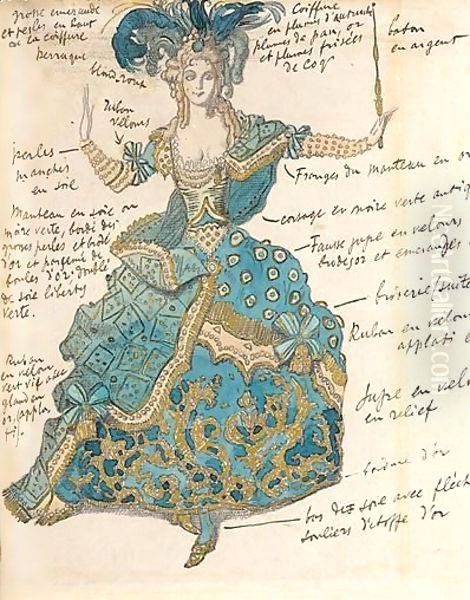 grosse emeraude
et perles en haut
de la coiffure
perruque
blond roux
Coiffure
en plumes d'autruche
plumes de paon, or
et plumes frisées
de coq
baton
en argent
Ruban
velours
perles
manches
en soie
Franges du manteau en or
corsage en moire verte antiq
Manteau en soie ou
moire verte, bordé des
grosses perles et brodé
d'or et parsemé de
boules d'or, doublé
de soie liberty
verte.
Fausse jupe en velours
brodé or et emeraudes
Ruban en velou
applati e
Ruban
en velou
vert vif avec
gland en
or, appla
ti.
Jupe en velo
en relief
bordure d'or
bas de soie avec fléch
souliers d'étoffe d'or